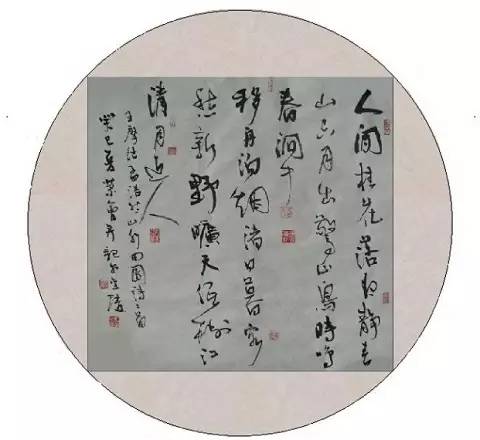 人閒桂花落夜靜春
山空月出驚山鳥時鳴
春澗中
移舟泊烟渚日暮客
愁新野曠天低樹江
清月近人
王摩詰孟浩然山水田園詩二首
癸巳